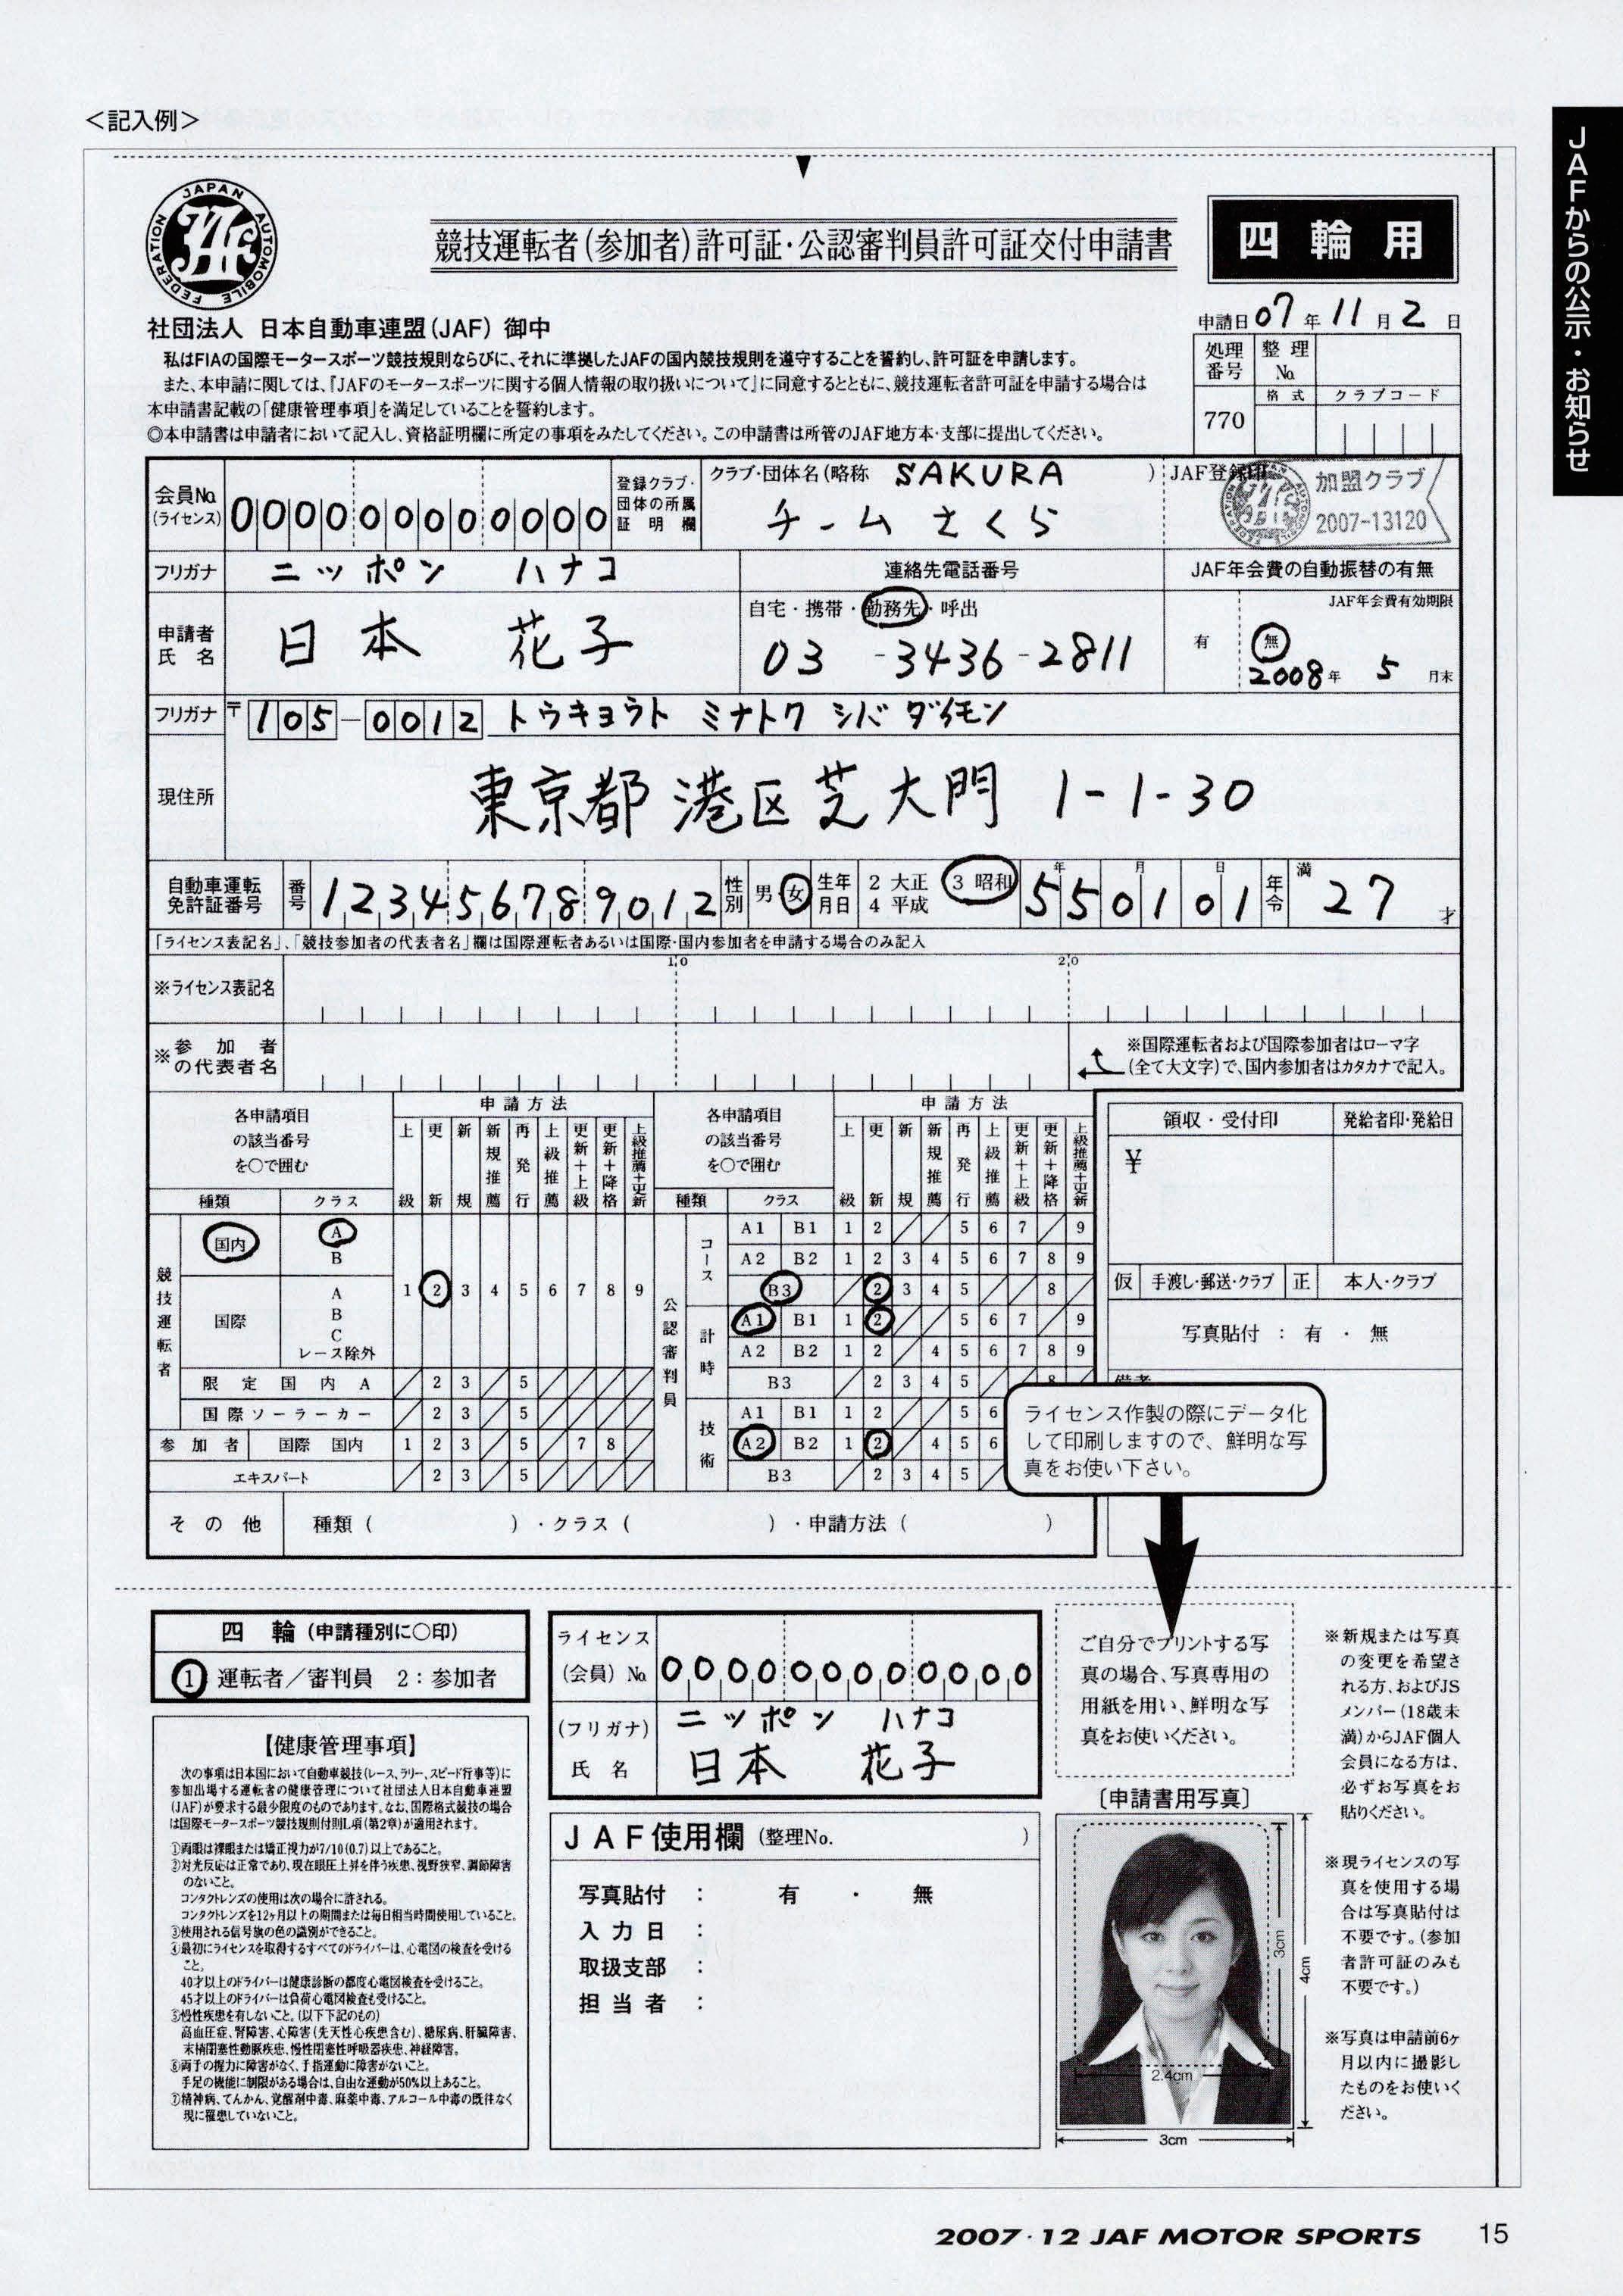 ＜記入例＞
JAFからの公示・お知らせ
JAPAN AUTOMOBILE FEDERATION
JAF
競技運転者(参加者)許可証・公認審判員許可証交付申請書
四輪用
申請日 07 年 11 月 2 日
社団法人 日本自動車連盟(JAF) 御中
私はFIAの国際モータースポーツ競技規則ならびに、それに準拠したJAFの国内競技規則を遵守することを誓約し、許可証を申請します。
また、本申請に関しては、『JAFのモータースポーツに関する個人情報の取り扱いについて』に同意するとともに、競技運転者許可証を申請する場合は
本申請書記載の「健康管理事項」を満足していることを誓約します。
◎本申請書は申請者において記入し、資格証明欄に所定の事項をみたしてください。この申請書は所管のJAF地方本・支部に提出してください。
処理番号 整理No.
770 格式 クラブコード
会員No.(ライセンス) 000000000000
登録クラブ・団体の所属証明欄
クラブ・団体名(略称 SAKURA )
チーム さくら
JAF登録印
加盟クラブ
2007-13120
フリガナ ニッポン ハナコ
連絡先電話番号
JAF年会費の自動振替の有無
申請者氏名 日本 花子
自宅・携帯・勤務先・呼出
03 -3436-2811
JAF年会費有効期限
有 無
2008年 5 月末
フリガナ 〒105-0012 トウキョウト ミナトク シバ ダイモン
現住所 東京都 港区芝大門 1-1-30
自動車運転免許証番号 番号 123456789012 性別 男 女 生年月日 2 大正 3 昭和 4 平成 55年01月01日 年令 満 27 才
「ライセンス表記名」、「競技参加者の代表者名」欄は国際運転者あるいは国際・国内参加者を申請する場合のみ記入
※ライセンス表記名 10 20
※参加者の代表者名
※国際運転者および国際参加者はローマ字
(全て大文字)で、国内参加者はカタカナで記入。
各申請項目の該当番号を○で囲む
申請方法
上級 更新 新規 新規推薦 再発行 上級推薦 更新+上級 更新+降格 上級推薦+更新
種類 クラス
競技運転者
国内 A B
国際 A B C レース除外
1 2 3 4 5 6 7 8 9
限定国内A 2 3 5
国際ソーラーカー 2 3 5
参加者 国際 国内 1 2 3 5 7 8
エキスパート 2 3 5
各申請項目の該当番号を○で囲む
申請方法
上級 更新 新規 新規推薦 再発行 上級推薦 更新+上級 更新+降格 上級推薦+更新
種類 クラス
公認審判員
コース
A1 B1 1 2 5 6 7 9
A2 B2 1 2 3 4 5 6 7 8 9
B3 2 3 4 5 8
計時
A1 B1 1 2 5 6 7 9
A2 B2 1 2 4 5 6 7 8 9
B3 2 3 4 5 8
技術
A1 B1 1 2 5 6
A2 B2 1 2 4 5 6
B3 2 3 4 5
その他 種類( )・クラス( )・申請方法( )
領収・受付印 発給者印・発給日
¥
仮 手渡し・郵送・クラブ 正 本人・クラブ
写真貼付 : 有 ・ 無
備考
ライセンス作製の際にデータ化
して印刷しますので、鮮明な写
真をお使い下さい。
四 輪 (申請種別に○印)
1 運転者／審判員 2：参加者
【健康管理事項】
次の事項は日本国において自動車競技(レース、ラリー、スピード行事等)に
参加出場する運転者の健康管理について社団法人日本自動車連盟
(JAF)が要求する最少限度のものであります。なお、国際格式競技の場合
は国際モータースポーツ競技規則付則L項(第2章)が適用されます。
①両眼は裸眼または矯正視力が7/10(0.7)以上であること。
②対光反応は正常であり、現在眼圧上昇を伴う疾患、視野狭窄、調節障害
のないこと。
コンタクトレンズの使用は次の場合に許される。
コンタクトレンズを12ヶ月以上の期間または毎日相当時間使用していること。
③使用される信号旗の色の識別ができること。
④最初にライセンスを取得するすべてのドライバーは、心電図の検査を受ける
こと。
40才以上のドライバーは健康診断の都度心電図検査を受けること。
45才以上のドライバーは負荷心電図検査も受けること。
⑤慢性疾患を有しないこと。(以下下記のもの)
高血圧症、腎障害、心障害(先天性心疾患含む)、糖尿病、肝臓障害、
末梢閉塞性動脈疾患、慢性閉塞性呼吸器疾患、神経障害。
⑥両手の握力に障害がなく、手指運動に障害がないこと。
手足の機能に制限がある場合は、自由な運動が50%以上あること。
⑦精神病、てんかん、覚醒剤中毒、麻薬中毒、アルコール中毒の既往なく
現に罹患していないこと。
ライセンス(会員)No. 000000000000
(フリガナ) ニッポン ハナコ
氏名 日本 花子
JAF使用欄 (整理No. )
写真貼付 : 有 ・ 無
入力日 :
取扱支部 :
担当者 :
ご自分でプリントする写
真の場合、写真専用の
用紙を用い、鮮明な写
真をお使いください。
〔申請書用写真〕
3cm
4cm
2.4cm
3cm
※新規または写真
の変更を希望さ
れる方、およびJS
メンバー(18歳未
満)からJAF個人
会員になる方は、
必ずお写真をお
貼りください。
※現ライセンスの写
真を使用する場
合は写真貼付は
不要です。(参加
者許可証のみも
不要です。)
※写真は申請前6ヶ
月以内に撮影し
たものをお使いく
ださい。
2007・12 JAF MOTOR SPORTS 15